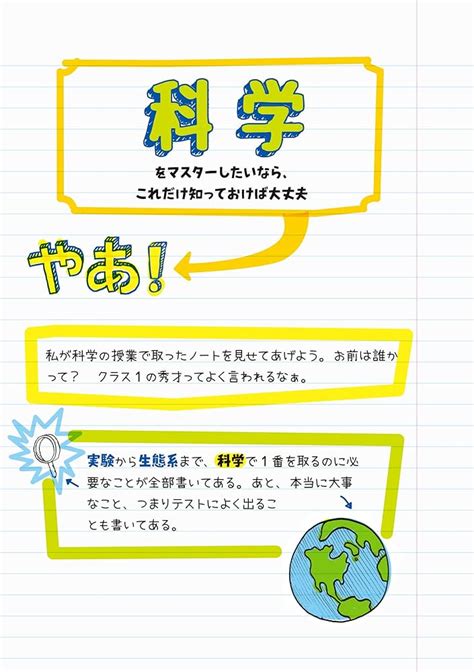 科学
をマスターしたいなら、
これだけ知っておけば大丈夫
やあ！
私が科学の授業で取ったノートを見せてあげよう。お前は誰か
って？　クラス１の秀才ってよく言われるなぁ。
実験から生態系まで、科学で１番を取るのに必
要なことが全部書いてある。あと、本当に大事
なこと、つまりテストによく出るこ
とも書いてある。